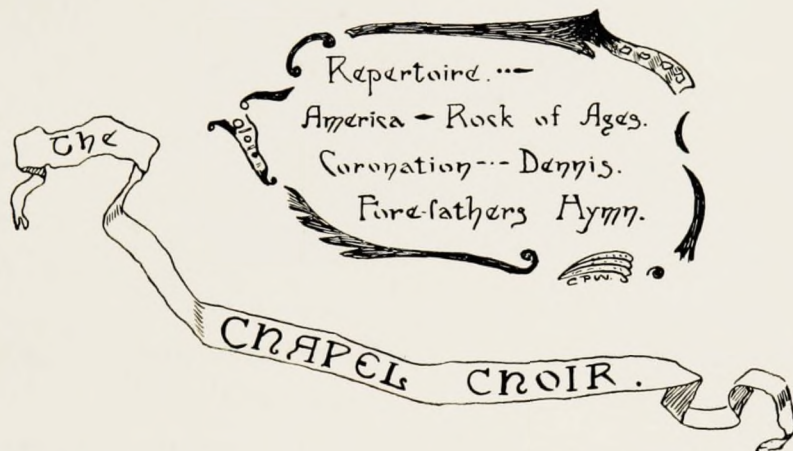 Repertoire.
America - Rock of Ages.
Coronation -- Dennis.
Fore-fathers Hymn.
C.P.W.
The
CHAPEL CHOIR.